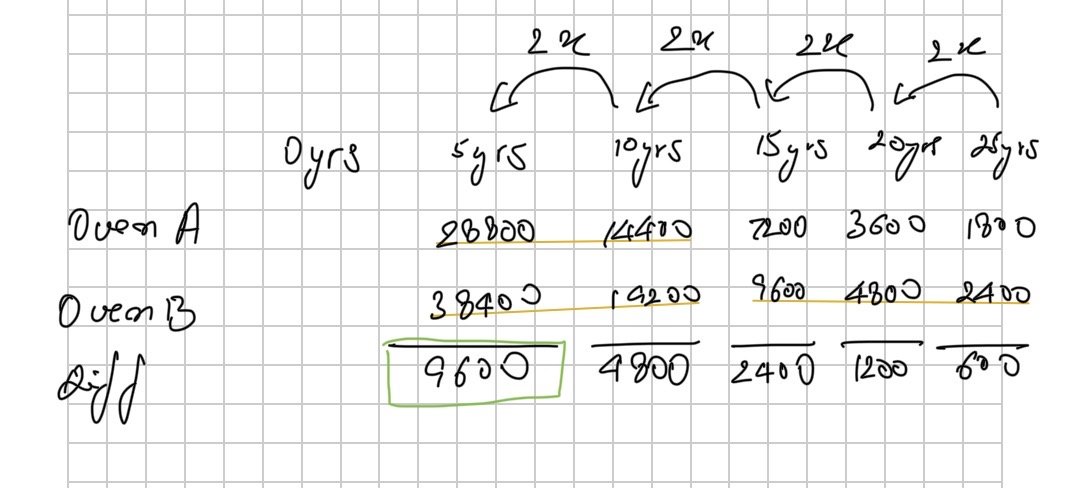 2x 2x 2x 2x
0yrs 5yrs 10yrs 15yrs 20yrs 25yrs
Oven A 28800 14400 7200 3600 1800
Oven B 38400 19200 9600 4800 2400
Diff 9600 4800 2400 1200 600